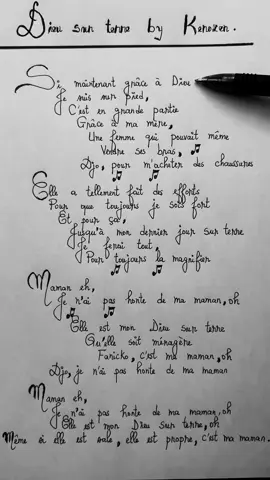 Dieu sur terre by Kerozen.
Si maintenant grâce à Dieu
Je suis sur pied,
C'est en grande partie
Grâce à ma mère,
Une femme qui pouvait même
Vendre ses bras,
Djo, pour m'acheter des chaussures
Elle a tellement fait des efforts
Pour que toujours je sois fort
Et pour ça,
Jusqu'à mon dernier jour sur terre
Je ferai tout,
Pour toujours la magnifier
Maman eh,
Je n'ai pas honte de ma maman, oh
Elle est mon Dieu sur terre
Qu'elle soit ménagère
Fanicko, c'est ma maman, oh
Djo, je n'ai pas honte de ma maman
Maman eh,
Je n'ai pas honte de ma maman, oh
Elle est mon Dieu sur terre, oh
Même si elle est sale, elle est propre, c'est ma maman.